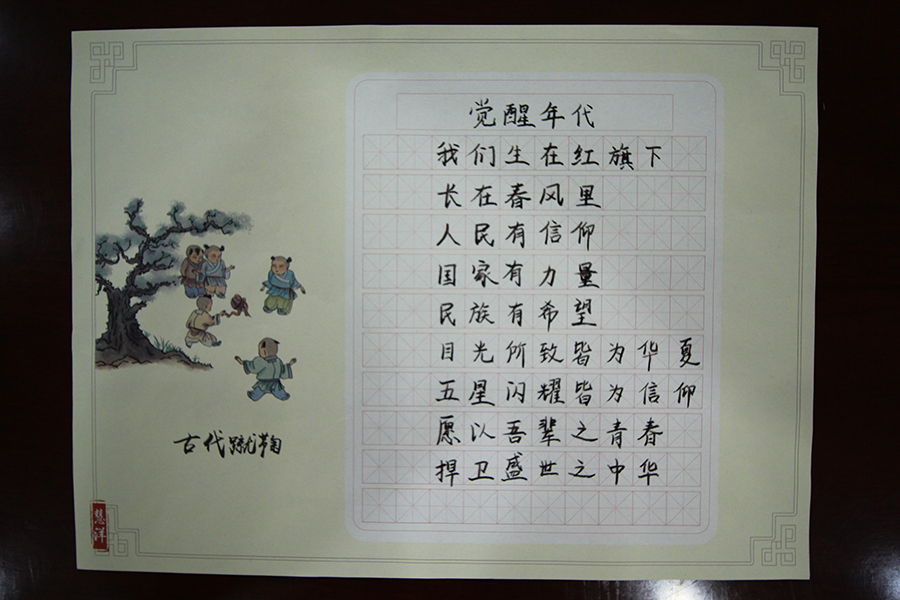 觉醒年代
我们生在红旗下
长在春风里
人民有信仰
国家有力量
民族有希望
目光所致皆为华夏
五星闪耀皆为信仰
愿以吾辈之青春
捍卫盛世之中华
古代蹴鞠
慧洋